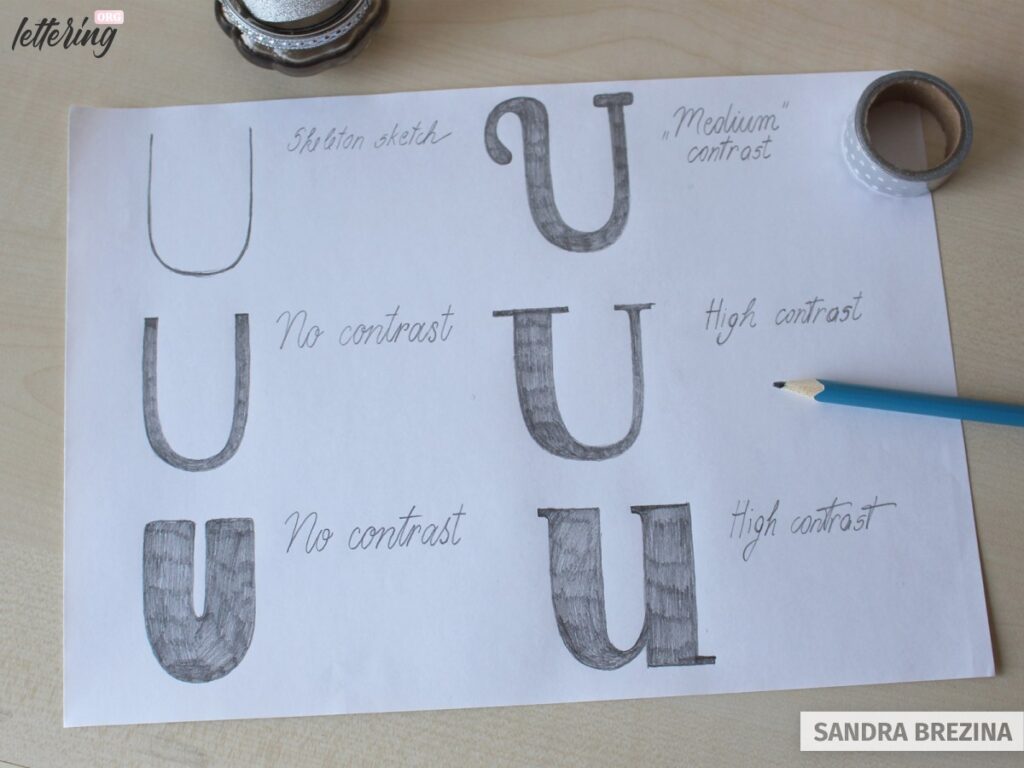 lettering
ORG
U
Skeleton sketch
U
„Medium"
contrast
U
No contrast
U
High contrast
U
No contrast
u
High contrast
SANDRA BREZINA